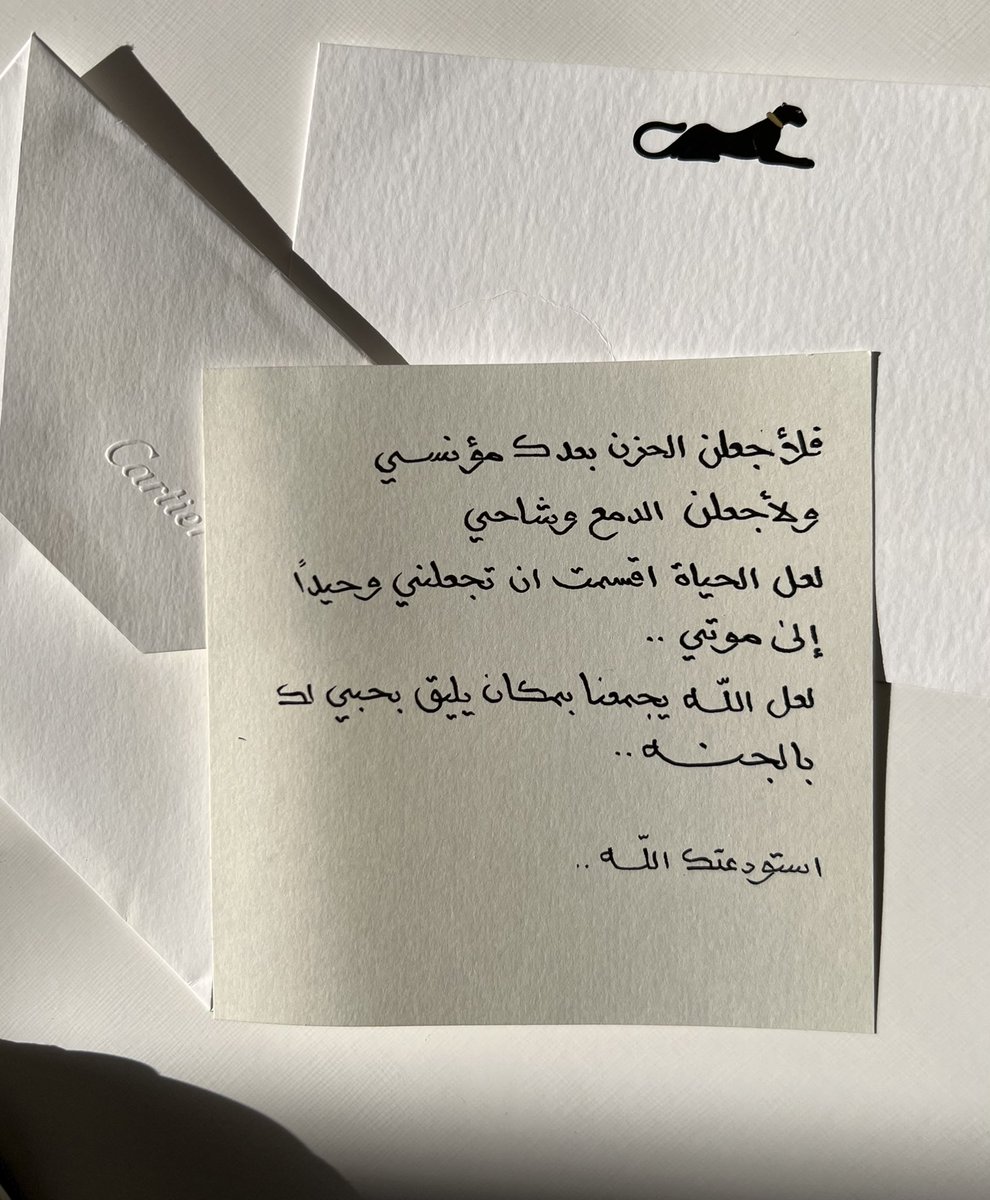 Cartier
فلأجعلن الحزن بعدك مؤنسي
ولأجعلن الدمع وشاحي
لعل الحياة اقسمت ان تجعلني وحيداً
إلى موتي ..
لعل اللّه يجمعنا بمكان يليق بحبي لك
بالجنه ..
استودعتك اللّه ..